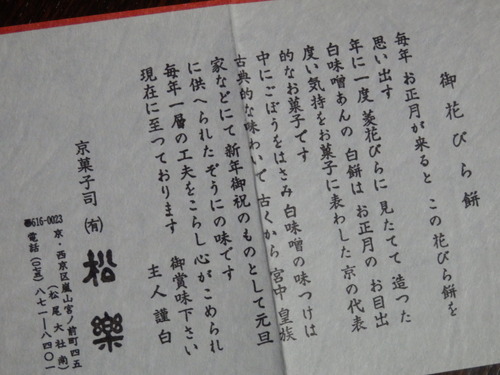 御花びら餅
毎年 お正月が来ると この花びら餅を
思い出す
年に一度 菱花びらに 見たてて 造った
白味噌あんの 白餅は お正月の お目出
度い気持をお菓子に表わした 京の代表
的なお菓子です
中にごぼうをはさみ 白味噌の 味つけは
古典的な味わいで 古くから 宮中 皇族
家などにて 新年御祝のものとして元旦
に供へられたぞうにの味です
毎年一層の工夫をこらし心がこめられ
現在に至つております
御賞味下さい
主人 謹白
京菓子司 ㈲ 松樂
〠616-0023
京・西京区嵐山宮ノ前町四五
(松尾大社南)
電話(〇七五)八七一―八四〇一